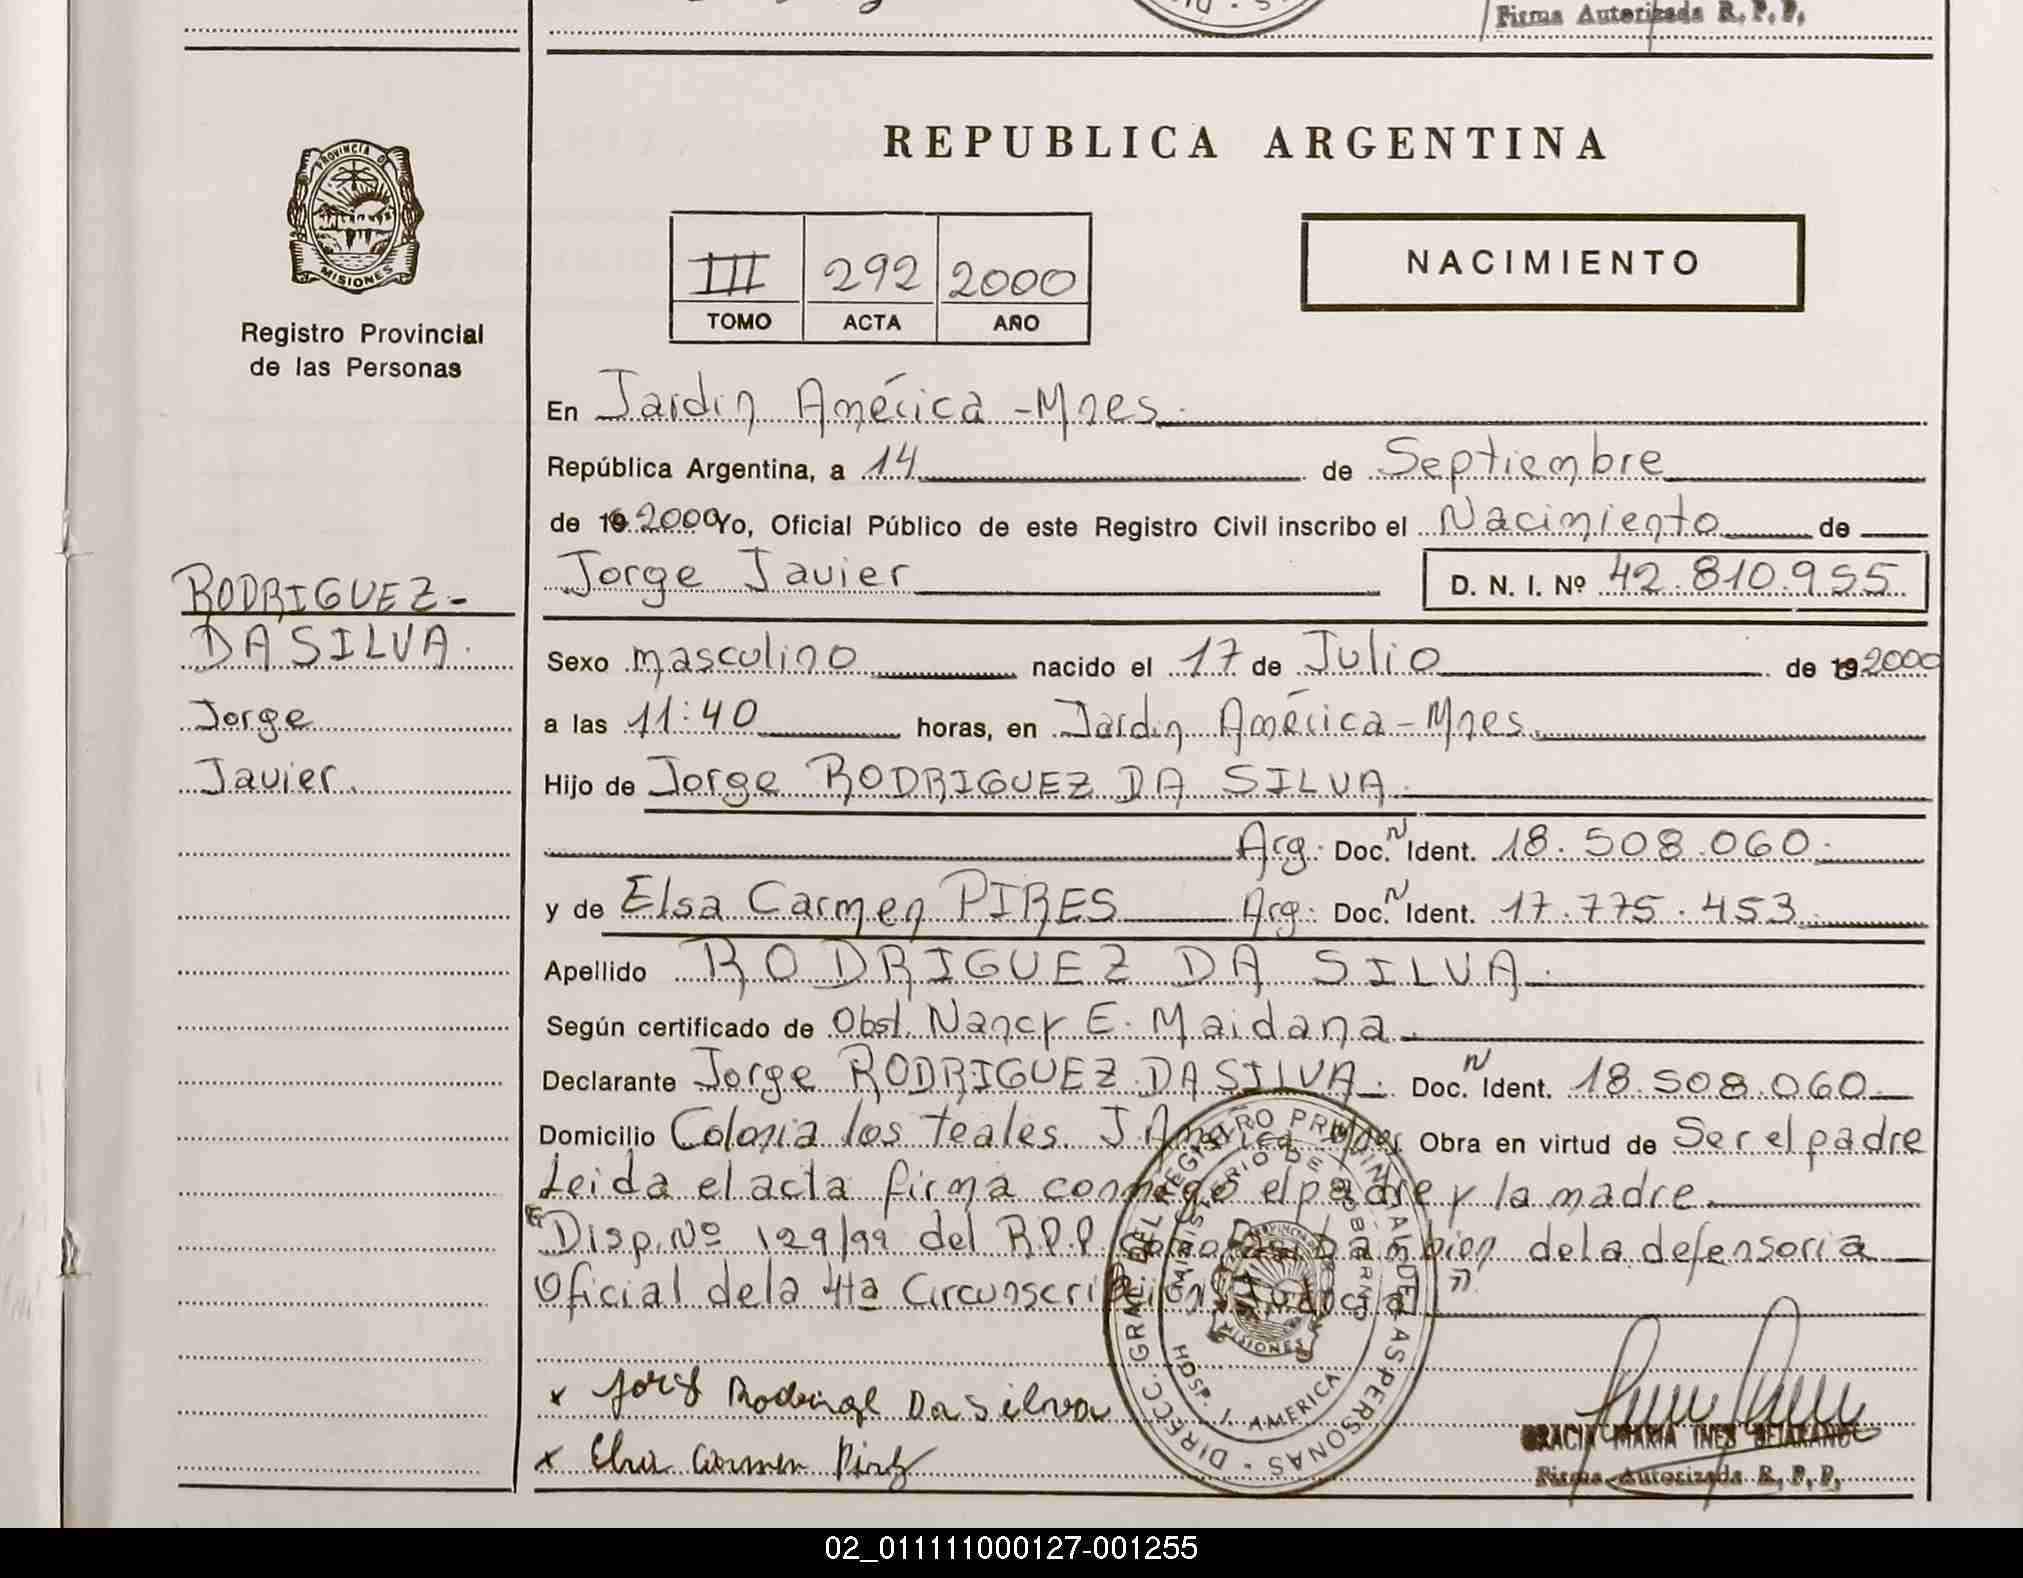 Firma Autorizada R. P. P.
PROVINCIA DE
MISIONES
Registro Provincial
de las Personas
RODRIGUEZ-
DA SILVA.
Jorge
Javier.
REPUBLICA ARGENTINA
III 292 2000
TOMO ACTA AÑO
NACIMIENTO
En Jardin América - Mnes.
República Argentina, a 14 de Septiembre
de 19 2000 Yo, Oficial Público de este Registro Civil inscribo el Nacimiento de
Jorge Javier D. N. I. Nº 42.810.955
Sexo masculino nacido el 17 de Julio de 19 2000
a las 11:40 horas, en Jardin América - Mnes.
Hijo de Jorge RODRIGUEZ DA SILVA.
Arg. Doc. N Ident. 18.508.060.
y de Elsa Carmen PIRES Arg. Doc. N Ident. 17.775.453.
Apellido RODRIGUEZ DA SILVA.
Según certificado de Obst. Nancy E. Maidana.
Declarante Jorge RODRIGUEZ DA SILVA. Doc. N Ident. 18.508.060.
Domicilio Colonia los teales. J. América Mnes Obra en virtud de Ser el padre
Leida el acta firma conmigo el padre y la madre.
Disp. Nº 129/99 del R.P.P. como asi tambien de la defensoria
Oficial de la 4ta Circunscripcion Judicial".
x Jorge Rodrigez Da silva
x Elsa Carmen Pires
DIRECC. GRAL. DEL REGISTRO PROVINCIAL DE LAS PERSONAS
MINISTERIO DE GOBIERNO
HOSP. J. AMERICA
PROVINCIA DE
MISIONES
GRACIA MARIA INES BEJARANO
Firma Autorizada R. P. P.
02_011111000127-001255